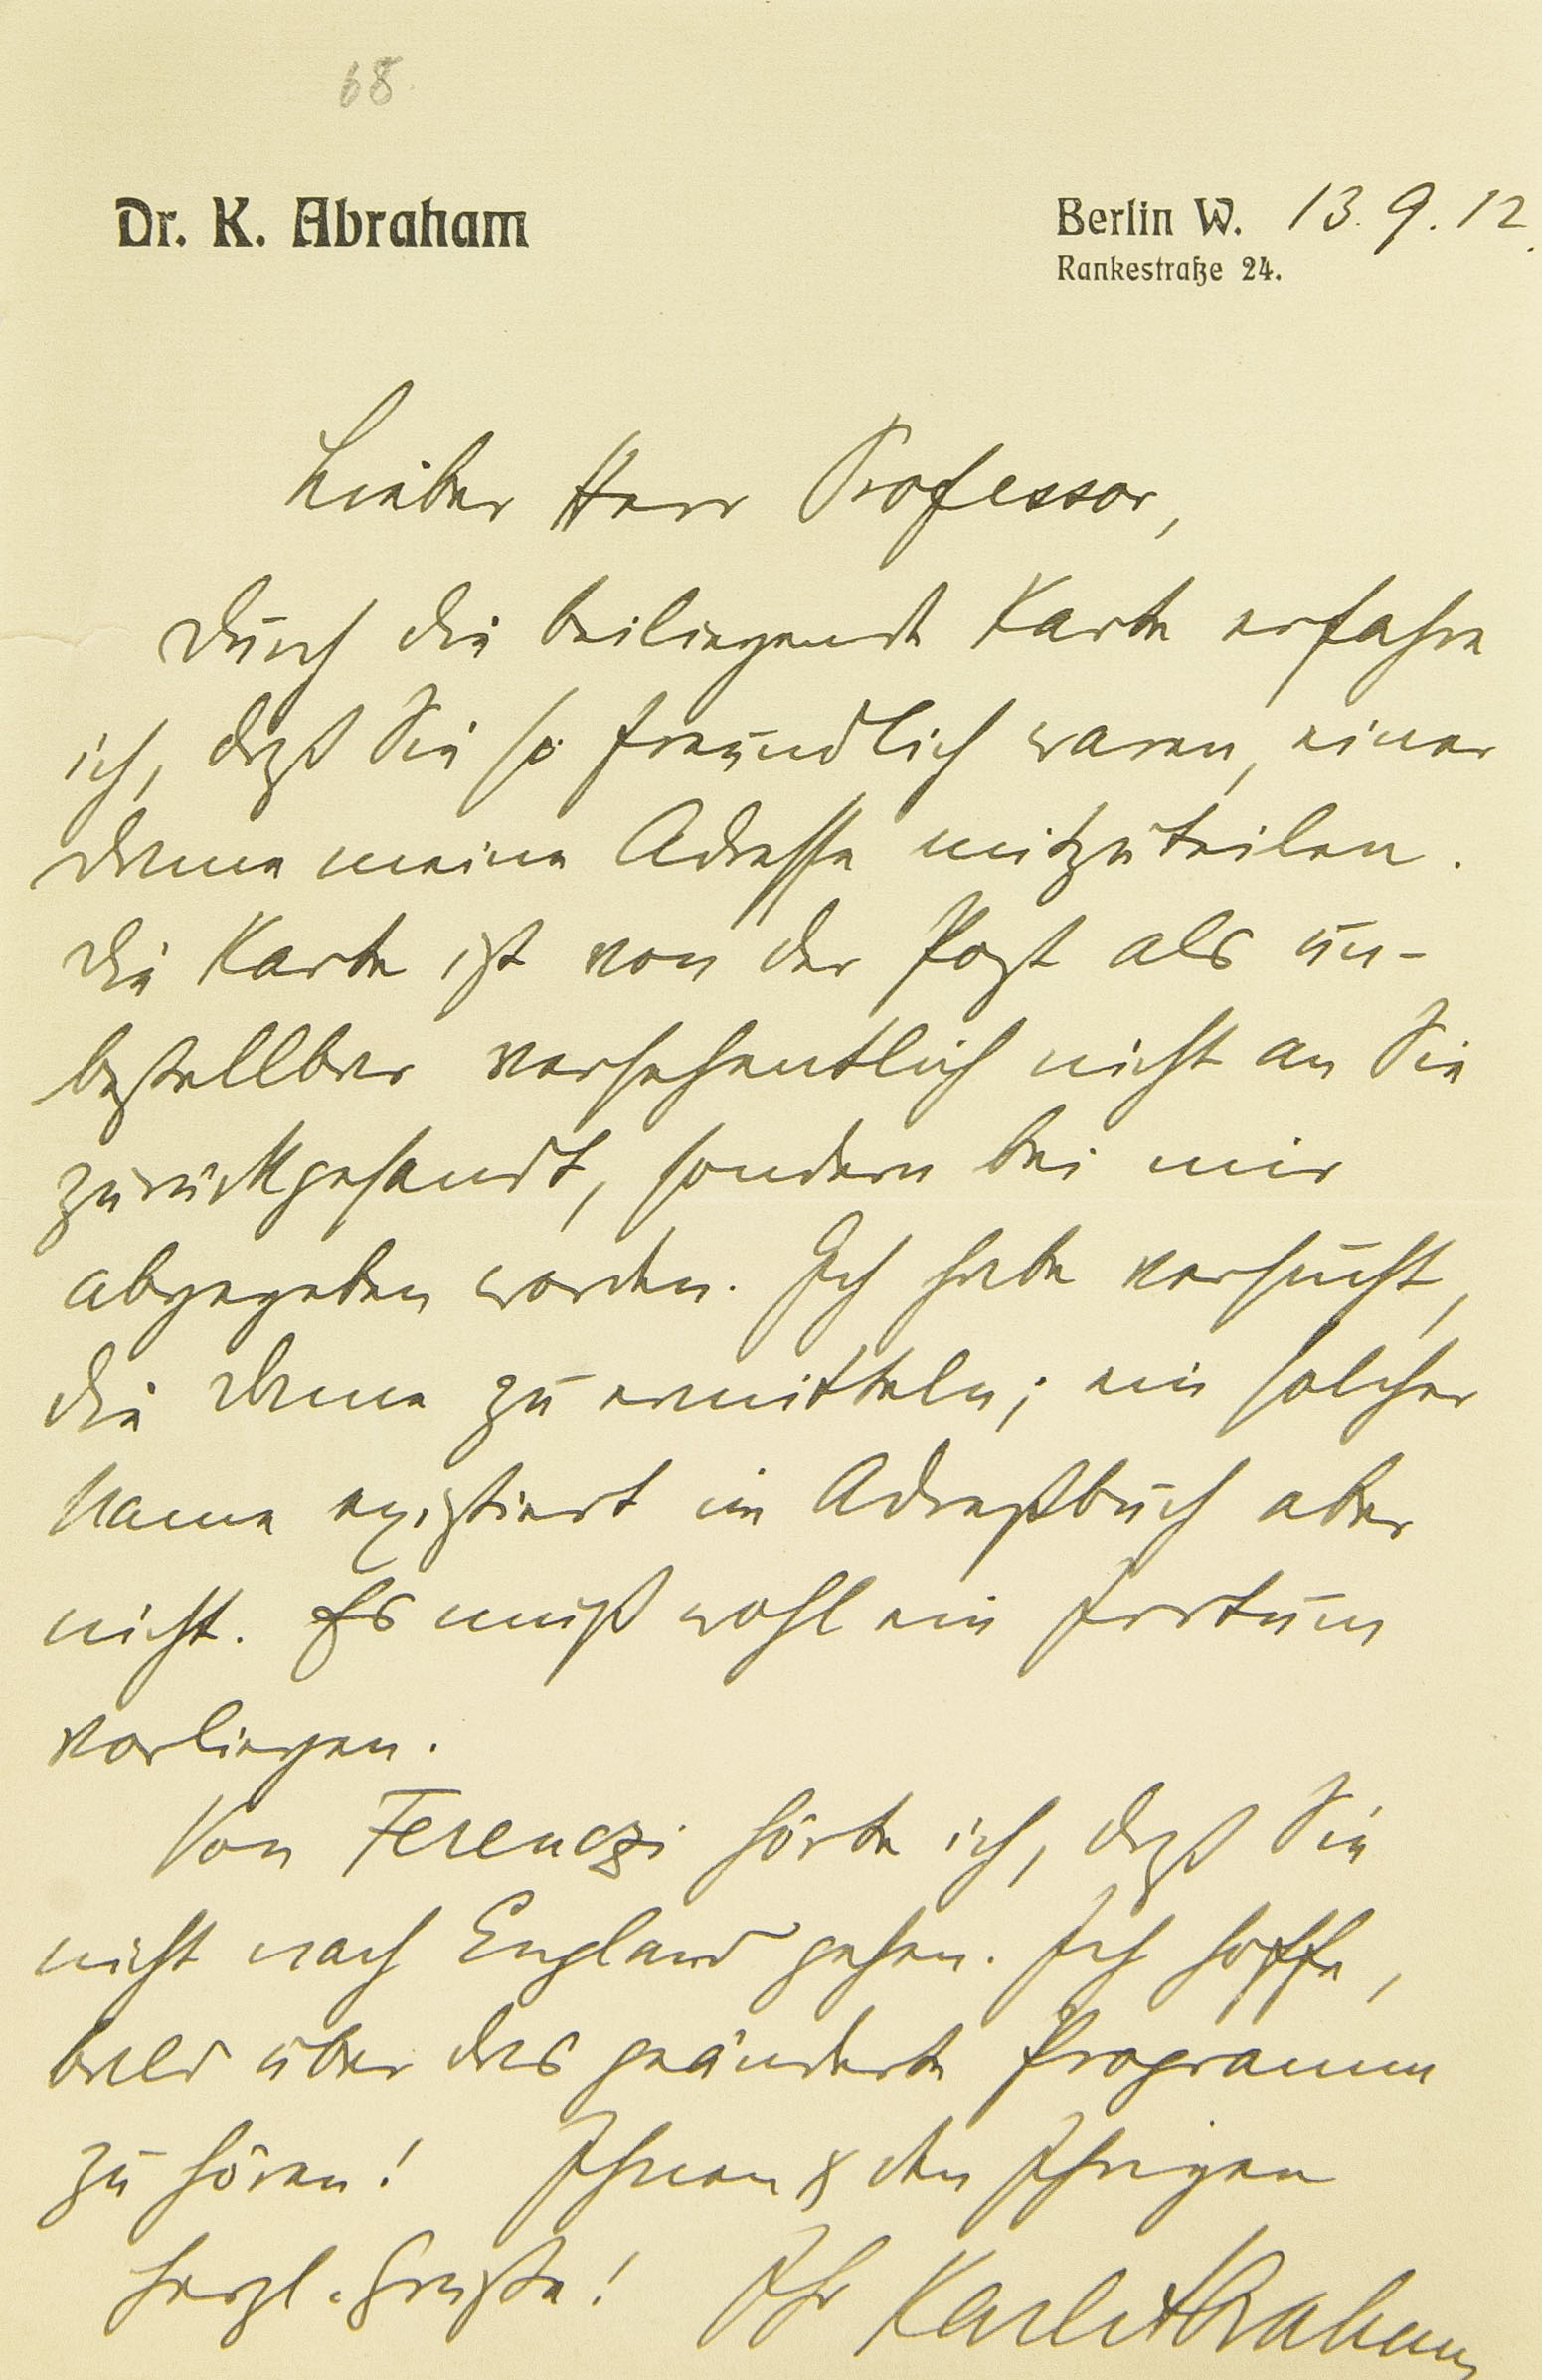 68
Dr. K. Abraham
Berlin W. 13.9.12.
Rankestraße 24.
Lieber Herr Professor,
Durch die beiliegende Karte erfahre
ich, daß Sie so freundlich waren, einer
Dame meine Adresse mitzuteilen.
Die Karte ist von der Post als un-
bestellbar versehentlich nicht an Sie
zurückgesandt, sondern bei mir
abgegeben worden. Ich habe versucht,
die Dame zu ermitteln; ein solcher
Name existiert im Adreßbuch aber
nicht. Es muß wohl ein Irrtum
vorliegen.
Von Ferenczi hörte ich, daß Sie
nicht nach England gehen. Ich hoffe,
bald über das geänderte Programm
zu hören! Ihnen & den Ihrigen
herzl. Grüße! Ihr Karl Abraham